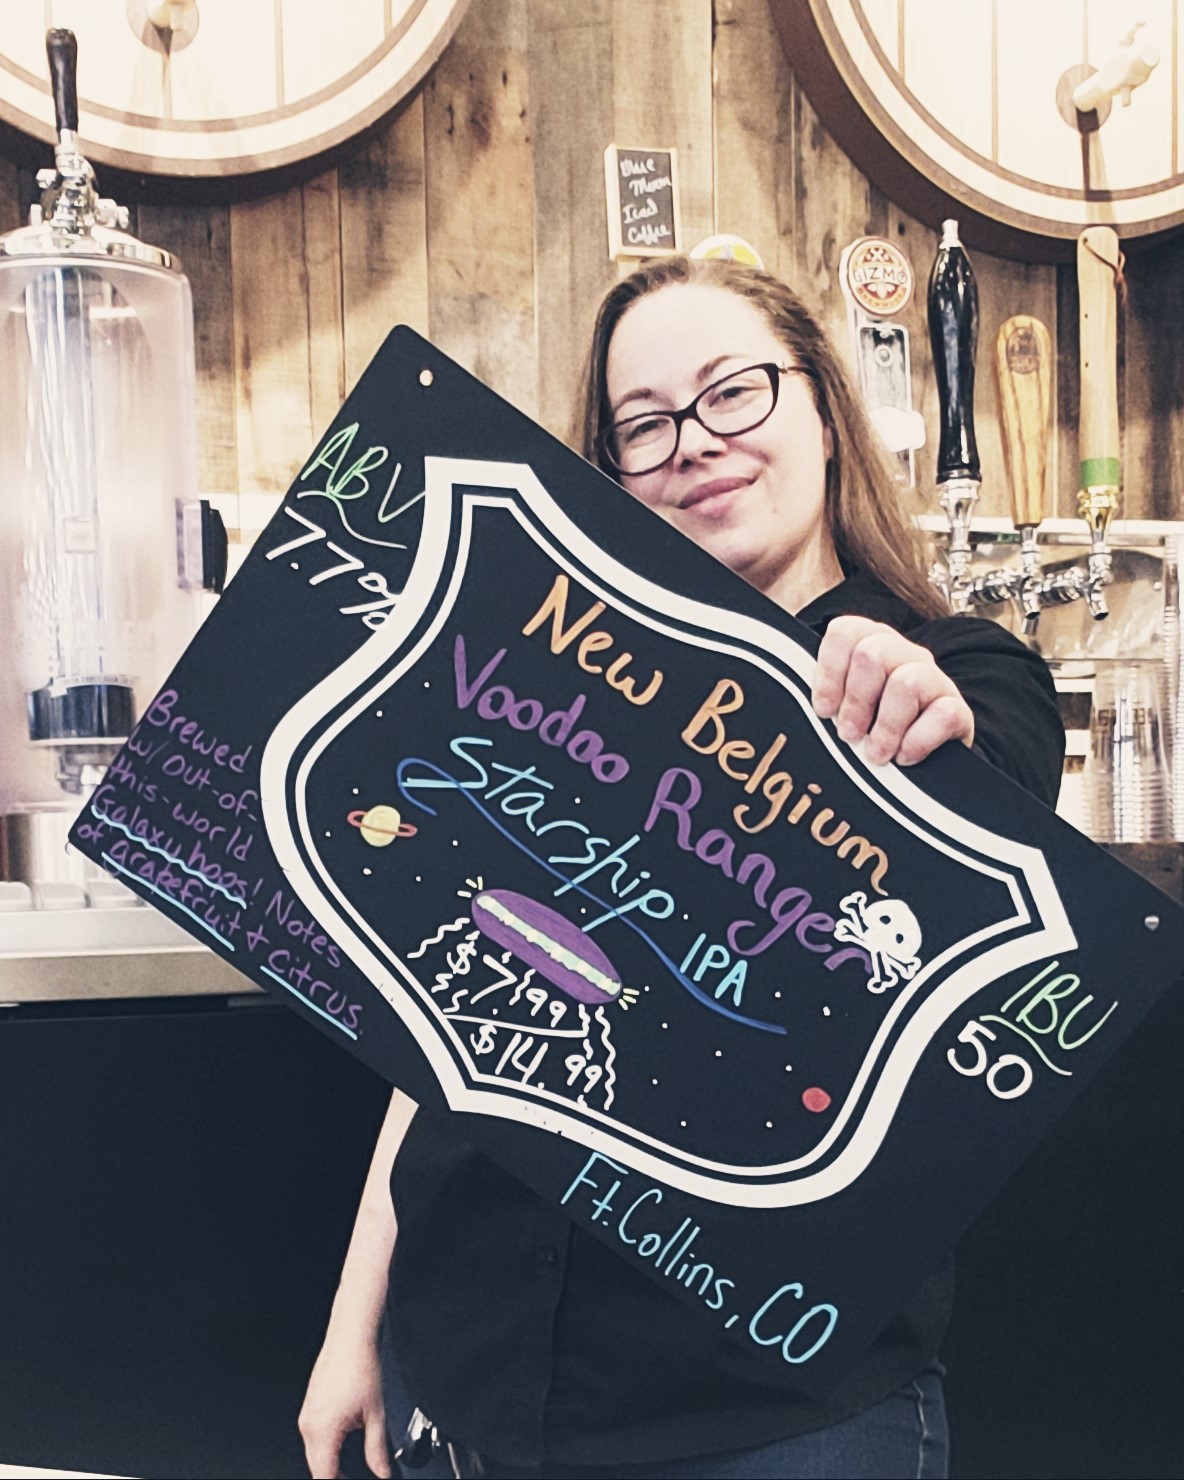 Blue
Moon
Iced
Coffee
GIZMO
ABV
7.7%
New Belgium
Voodoo Ranger
Starship IPA
$7.99
$14.99
IBU
50
Brewed
w/ out-of-
this-world
Galaxy hops! Notes
of grapefruit & citrus.
Ft. Collins, CO